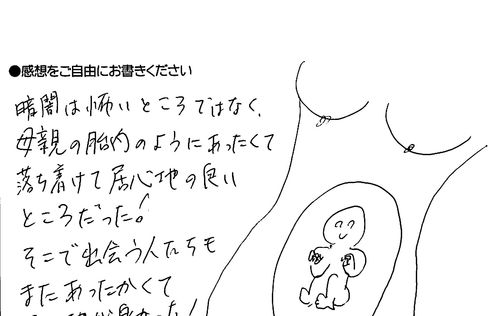 ●感想をご自由にお書きください
暗闇は怖いところではなく、
母親の胎内のようにあったくて
落ち着けて居心地の良い
ところだった!
そこで出会う人たちも
またあったかくて